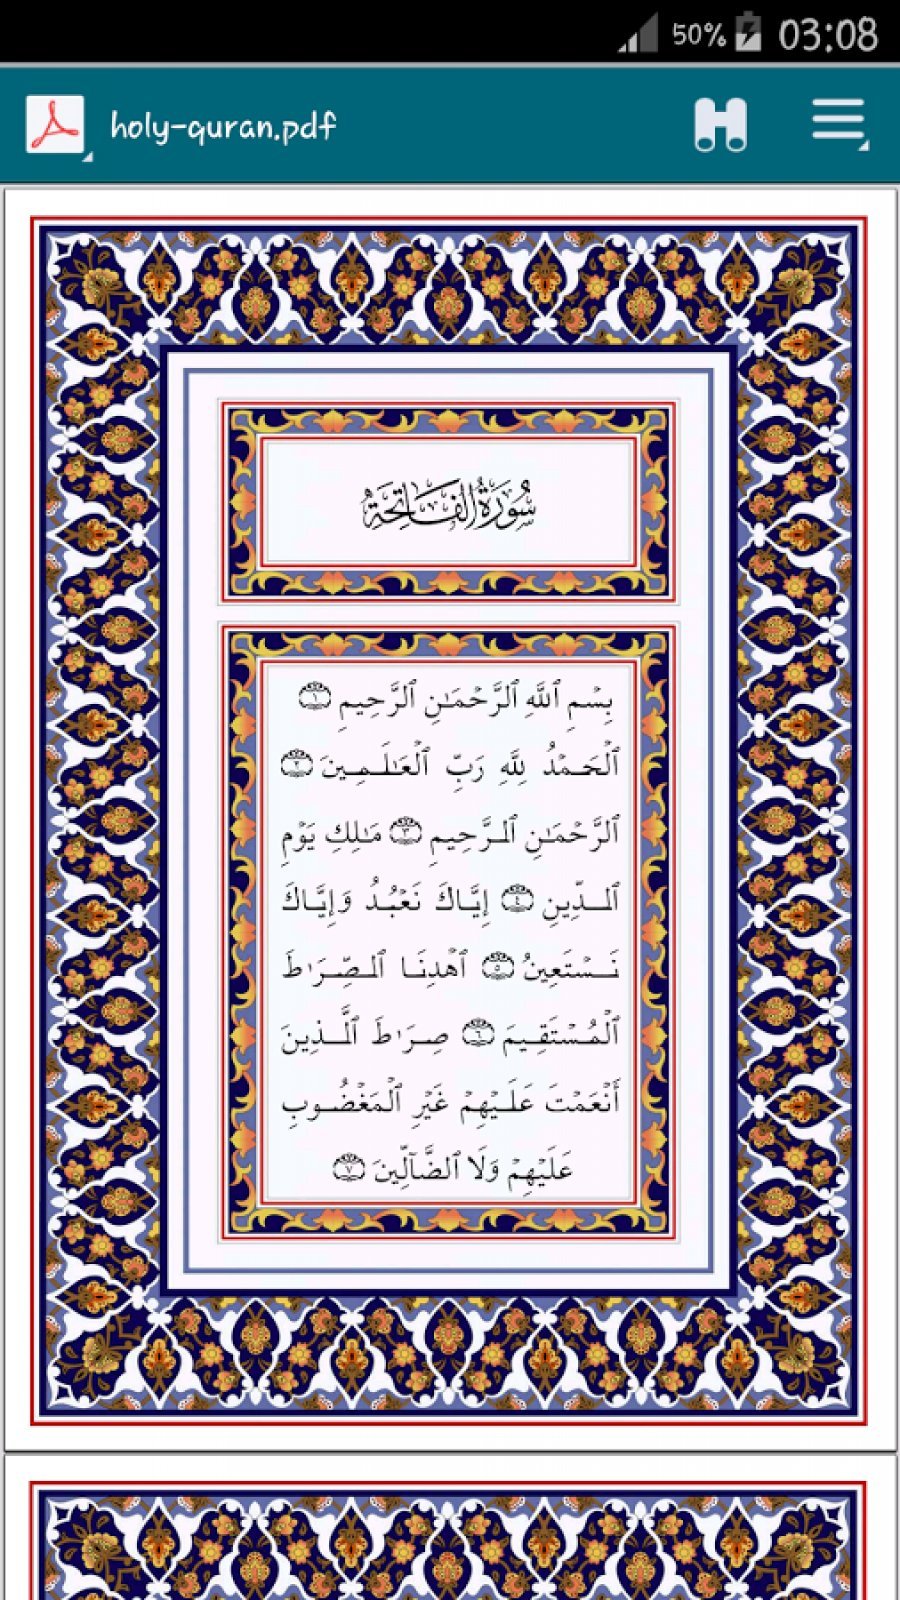 50% 03:08
holy-quran.pdf
سُورَةُ الفَاتِحَةِ
بِسۡمِ ٱللَّهِ ٱلرَّحۡمَـٰنِ ٱلرَّحِیمِ ١
ٱلۡحَمۡدُ لِلَّهِ رَبِّ ٱلۡعَـٰلَمِینَ ٢
ٱلرَّحۡمَـٰنِ ٱلرَّحِیمِ ٣ مَـٰلِكِ یَوۡمِ
ٱلدِّینِ ٤ إِیَّاكَ نَعۡبُدُ وَإِیَّاكَ
نَسۡتَعِینُ ٥ ٱهۡدِنَا ٱلصِّرَ ٰ⁠طَ
ٱلۡمُسۡتَقِیمَ ٦ صِرَ ٰ⁠طَ ٱلَّذِینَ
أَنۡعَمۡتَ عَلَیۡهِمۡ غَیۡرِ ٱلۡمَغۡضُوبِ
عَلَیۡهِمۡ وَلَا ٱلضَّاۤلِّینَ ٧